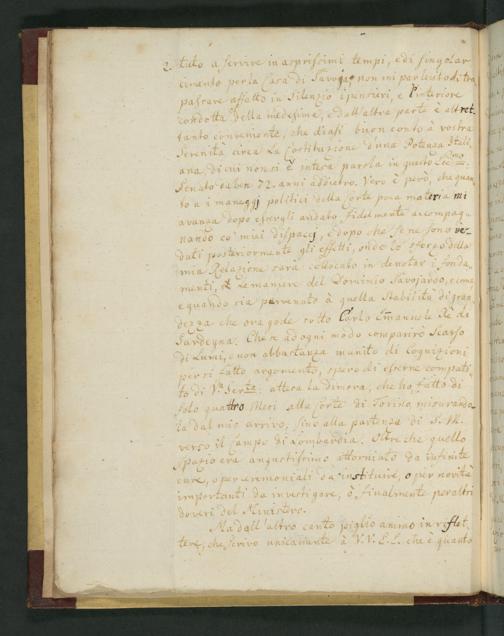 2. tuto a servire in asprissimi tempi, e di singolar
cimento per la Casa di Savoja, non mi par lecito di tra
passare affatto in silenzio i pensieri, e l'interiore
condotta della medesima, e dall'altra parte è altret
tanto conveniente, che diasi buon conto à vostra
Serenità circa la Costituzione d'una Potenza Itali
ana, di cui non si è intesa parola in questo Ecc.mo
Senato da ben 72. anni addietro. Vero è però, che quan
to a i maneggj politici della Corte poca materia mi
avanza dopo esserli andato fidelmente accompag
nando co' miei dispaccj, e dopo che se ne sono ve
duti posteriormente gli effetti, onde lo sforzo della
mia Relazione sarà collocato in denotar i fonda
menti, e le maniere del Dominio Savojardo, e come
e quando sia pervenuto à quella Stabilità di gran
dezza che ora gode sotto Carlo Emanuele Rè di
Sardegna. Che se ad ogni modo comparirò scarso
di Lumi, e non abbastanza munito di cognizioni
per sì fatto argomento, spero di esserne compati
to di V.a Ser.tà attesa la dimora, che hò fatto di
soli quattro Mesi alla Corte di Torino, misurando
la dal mio arrivo, sino alla partenza di S. M.
verso il Campo di Lombardia. Oltre che quello
Spazio era angustissimo attorniato da infinite
cure, o per ceremoniali da instituire, o per novità
importanti da investigare, ò finalmente per altri
doveri del Ministero.
Ma dall'altro canto piglio animo in reflet
tere, che scrivo unicamente à V. V. E. E. che è quanto